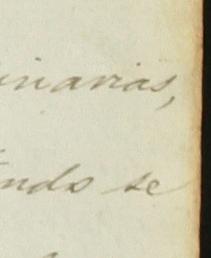 inarias,
ndo se